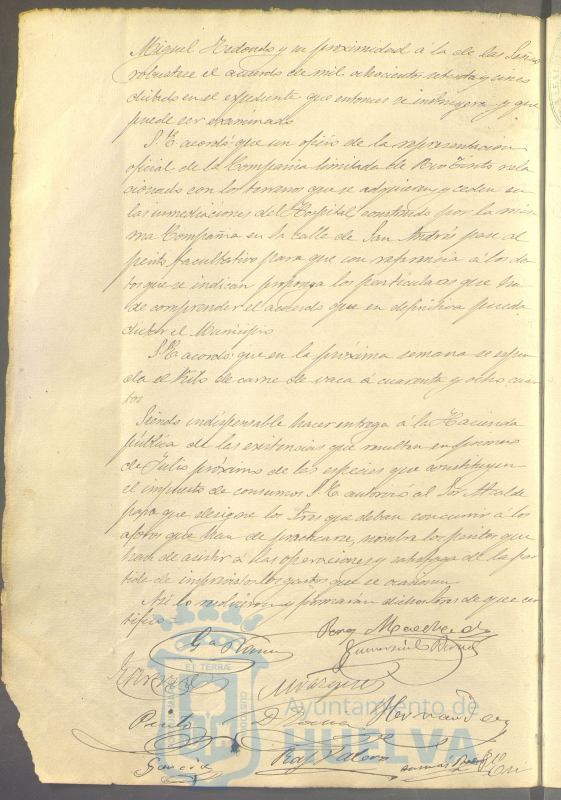 Miguel Redondo y su proximidad á la de las Señas
robustece el acuerdo de mil ochocientos setenta y cinco
dictado en el espediente que entonces se instruyera y que
puede ser examinado
S. E. acordó: que un oficio de la representacion
oficial de la Compañia limitada de Rio Tinto rela
cionado con los terrenos que se adquieren y ceden en
las inmediaciones del Hospital construido por la mis
ma Compañia en la calle de San Andrés pase al
perito facultativo para que con referencia á los da
tos que se indican proponga los particulares que ha
de comprender el acuerdo que en definitiva pueda
dictar el Municipio
S. E. acordó: que en la próxima semana se espen
da el Kilo de carne de vaca á cuarenta y ocho cuar
tos
Siendo indispensable hacer entrega á la Hacienda
pública de las existencias que resulten en primero
de Julio próximo de las especies que constituyen
el impuesto de consumos S. E. autorizó al Sor. Alcalde
para que designe los Sres que deban concurrir á los
aforos que han de practicarse, nombre los peritos que
han de asistir á las operaciones y satisfaga de la par
tida de imprevistos los gastos que se ocasionen
Asi lo resolvieron y firmarán dichos Sres de que cer
tifico =
Machado
Garcia
Vazquez
Hernandez
Pinto
García
Raf
ET TERRÆ
Ayuntamiento de
HUELVA